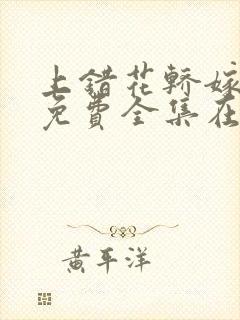 上错花轿嫁
免費全集在
黄平洋